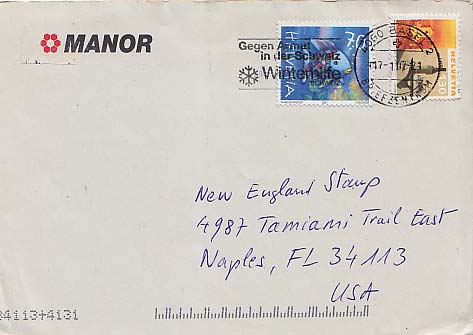 MANOR
Gegen Armut
in der Schweiz
Winterhilfe
HELVETIA
70
4000 BASEL 2
BRIEFZENTRUM
HELVETIA
New England Stamp
4987 Tamiami Trail East
Naples, FL 34113
USA
34113+4131